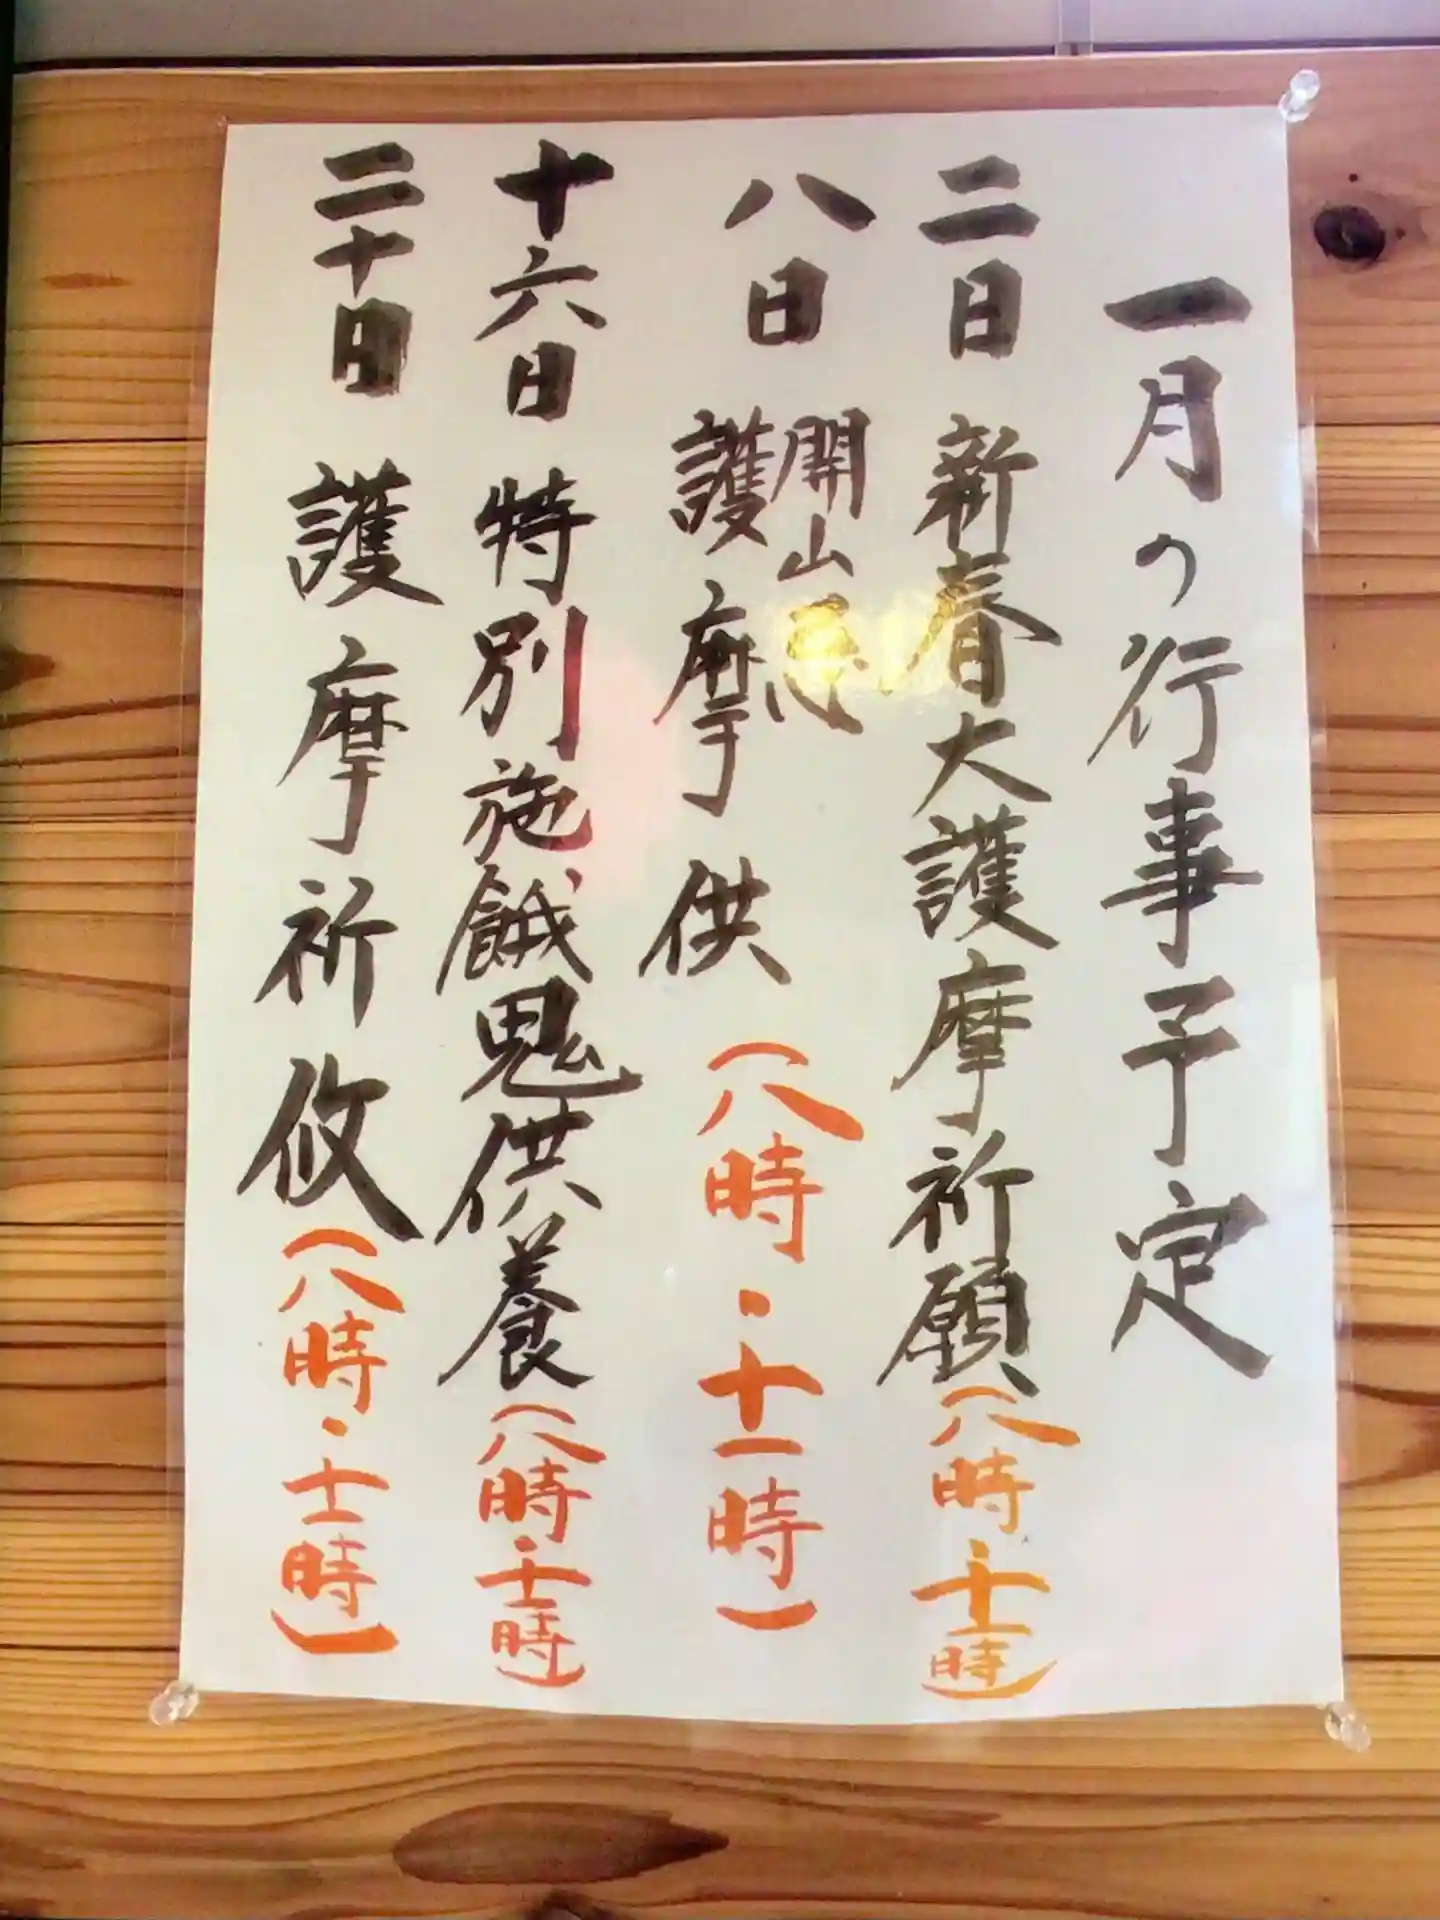 一月の行事予定
二日 新春大護摩祈願(八時・十一時)
八日 開山忌
護摩供(八時・十一時)
十六日 特別施餓鬼供養(八時・十一時)
二十日 護摩祈攸(八時・十一時)